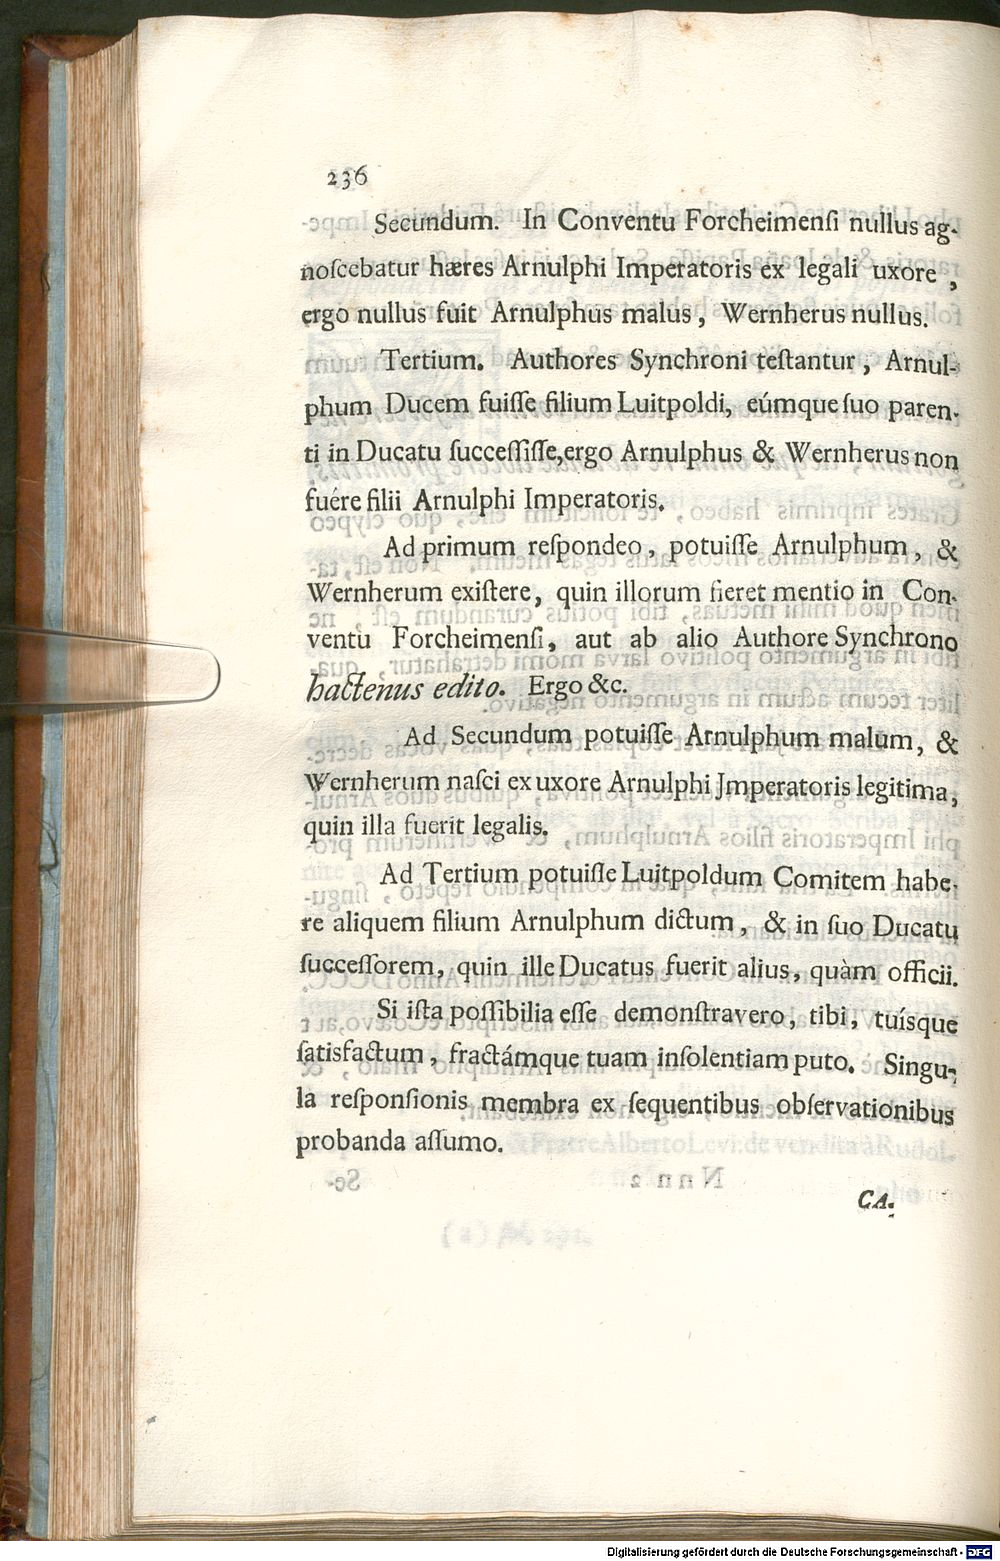 236
Secundum. In Conventu Forcheimenſi nullus ag-
noſcebatur hæres Arnulphi Imperatoris ex legali uxore,
ergo nullus fuit Arnulphus malus, Wernherus nullus.
Tertium. Authores Synchroni teſtantur, Arnul-
phum Ducem fuiſſe filium Luitpoldi, eúmque ſuo paren-
ti in Ducatu ſucceſſiſſe, ergo Arnulphus & Wernherus non
fuére filii Arnulphi Imperatoris.
Ad primum reſpondeo, potuiſſe Arnulphum, &
Wernherum exiſtere, quin illorum fieret mentio in Con-
ventu Forcheimenſi, aut ab alio Authore Synchrono
hactenus edito. Ergo &c.
Ad Secundum potuiſſe Arnulphum malum, &
Wernherum naſci ex uxore Arnulphi Jmperatoris legitima,
quin illa fuerit legalis.
Ad Tertium potuiſſe Luitpoldum Comitem habe-
re aliquem filium Arnulphum dictum, & in ſuo Ducatu
ſucceſſorem, quin ille Ducatus fuerit alius, quàm officii.
Si iſta poſſibilia eſſe demonſtravero, tibi, tuísque
ſatisfactum, fractámque tuam inſolentiam puto. Singu-
la reſponſionis membra ex ſequentibus obſervationibus
probanda aſſumo.
CA-
Digitalisierung gefördert durch die Deutsche Forschungsgemeinschaft - DFG